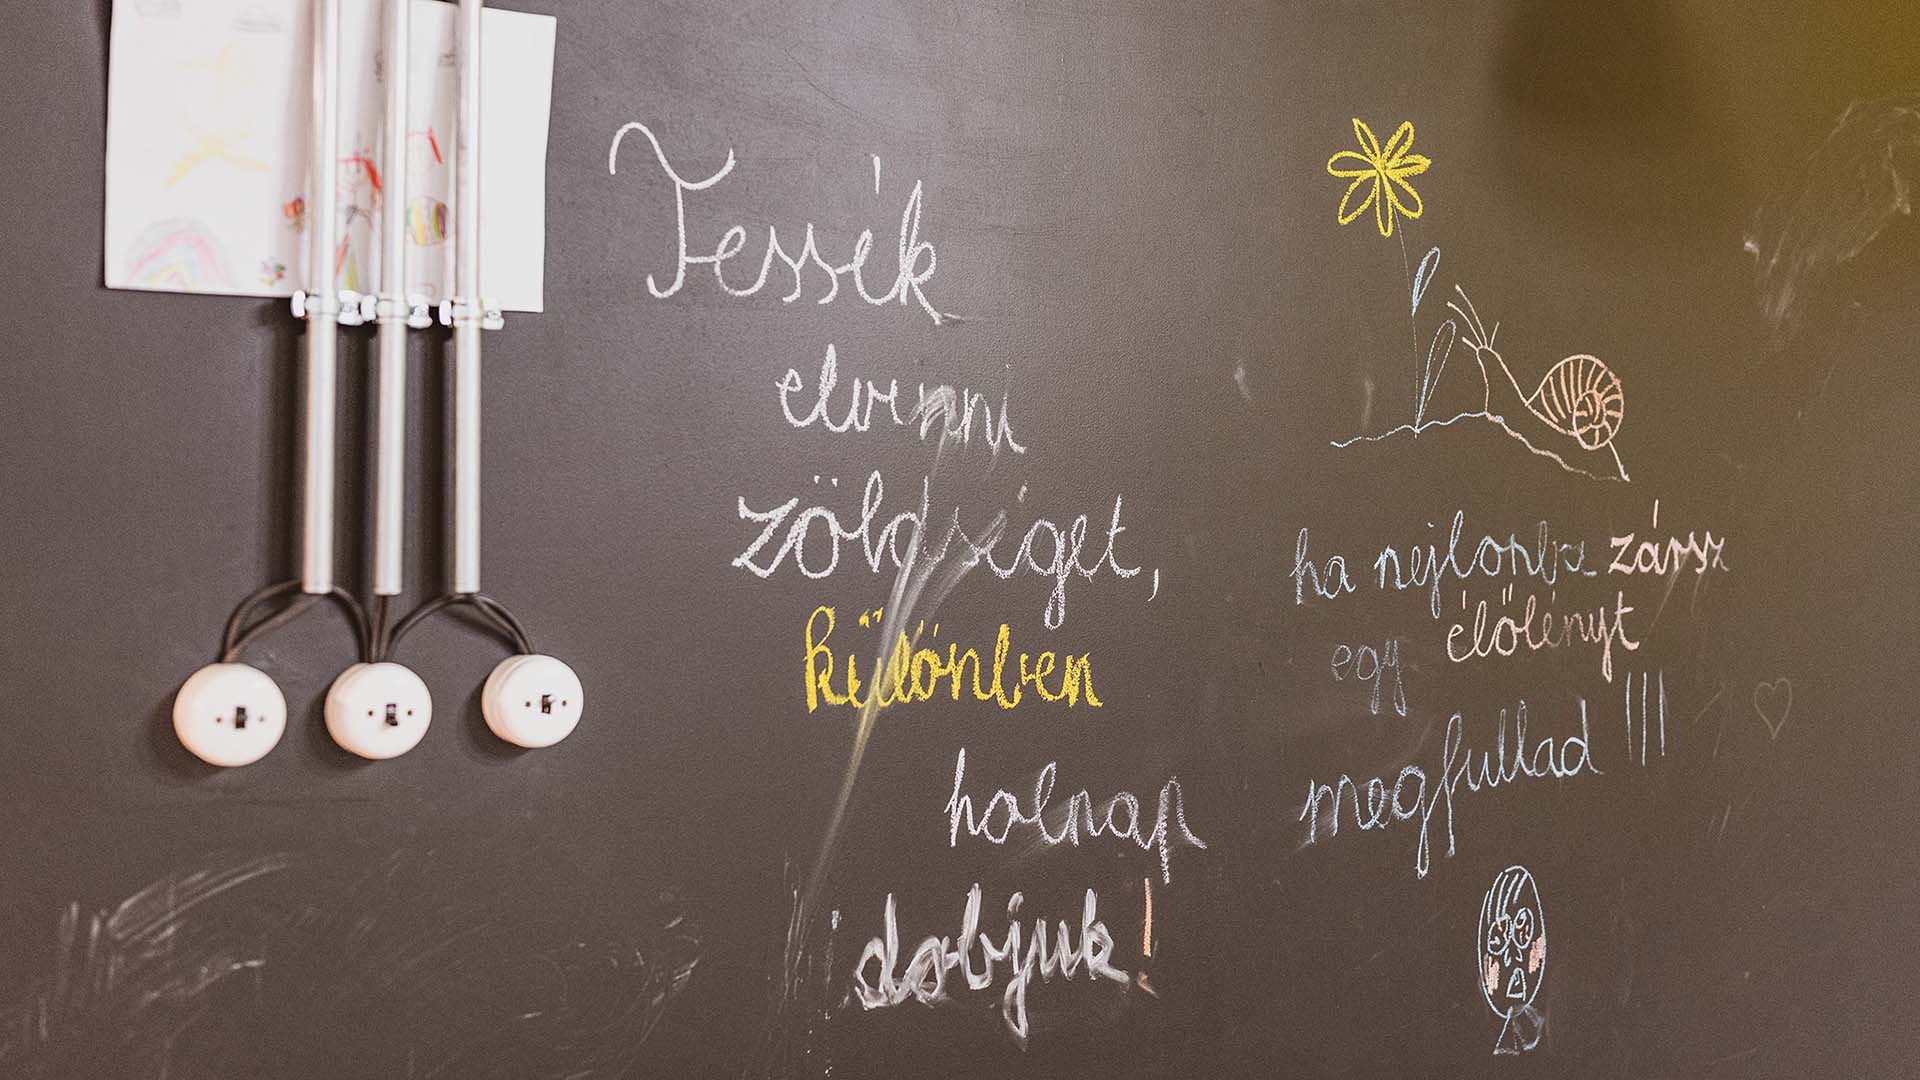 Tessék
elvinni
zöldséget,
különben
holnap
dobjuk!
ha nejlonba zársz
egy élőlényt
megfullad !!!